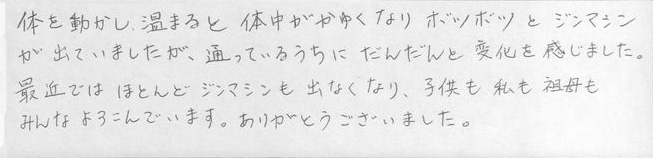 体を動かし、温まると 体中がかゆくなり ボツボツ と ジンマシン
が 出ていましたが、通っているうちに だんだんと 変化を感じました。
最近では ほとんど ジンマシンも 出なくなり、子供も 私も 祖母も
みんな よろこんでいます。ありがとうございました。